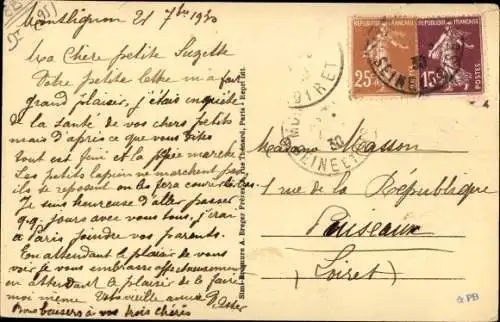 Montlignon 21 7bre 1930
Ma Chere petite Suzette
Votre petite lettre m'a fait
grand plaisir, j'étais inquiète
de la santé de vos chers petits
mais d'après ce que vous dites
tout est fini et la joie marche
Les petits lapins ne marchent pas
ils se reposent on les fera courir
Je suis heureuse d'aller passer
q.q. jours avec vous tous, j'irai
à Paris joindre vos parents.
En attendant le plaisir de vous
voir je vous embrasse affectueusement
en attendant le plaisir de le faire
moi même Votre vieille amie
Bons baisers à vos trois chéris
Simi-Bromure A. Breger Frères, Rue Thénard, Paris - Repr. Int.
REPUBLIQUE FRANÇAISE
25c
REPUBLIQUE FRANÇAISE
15c
POSTES
LOIRET
SEINE
SEINE ET
30
Madame Masson
1 rue de la République
Puiseaux
(Loiret)
☆PB